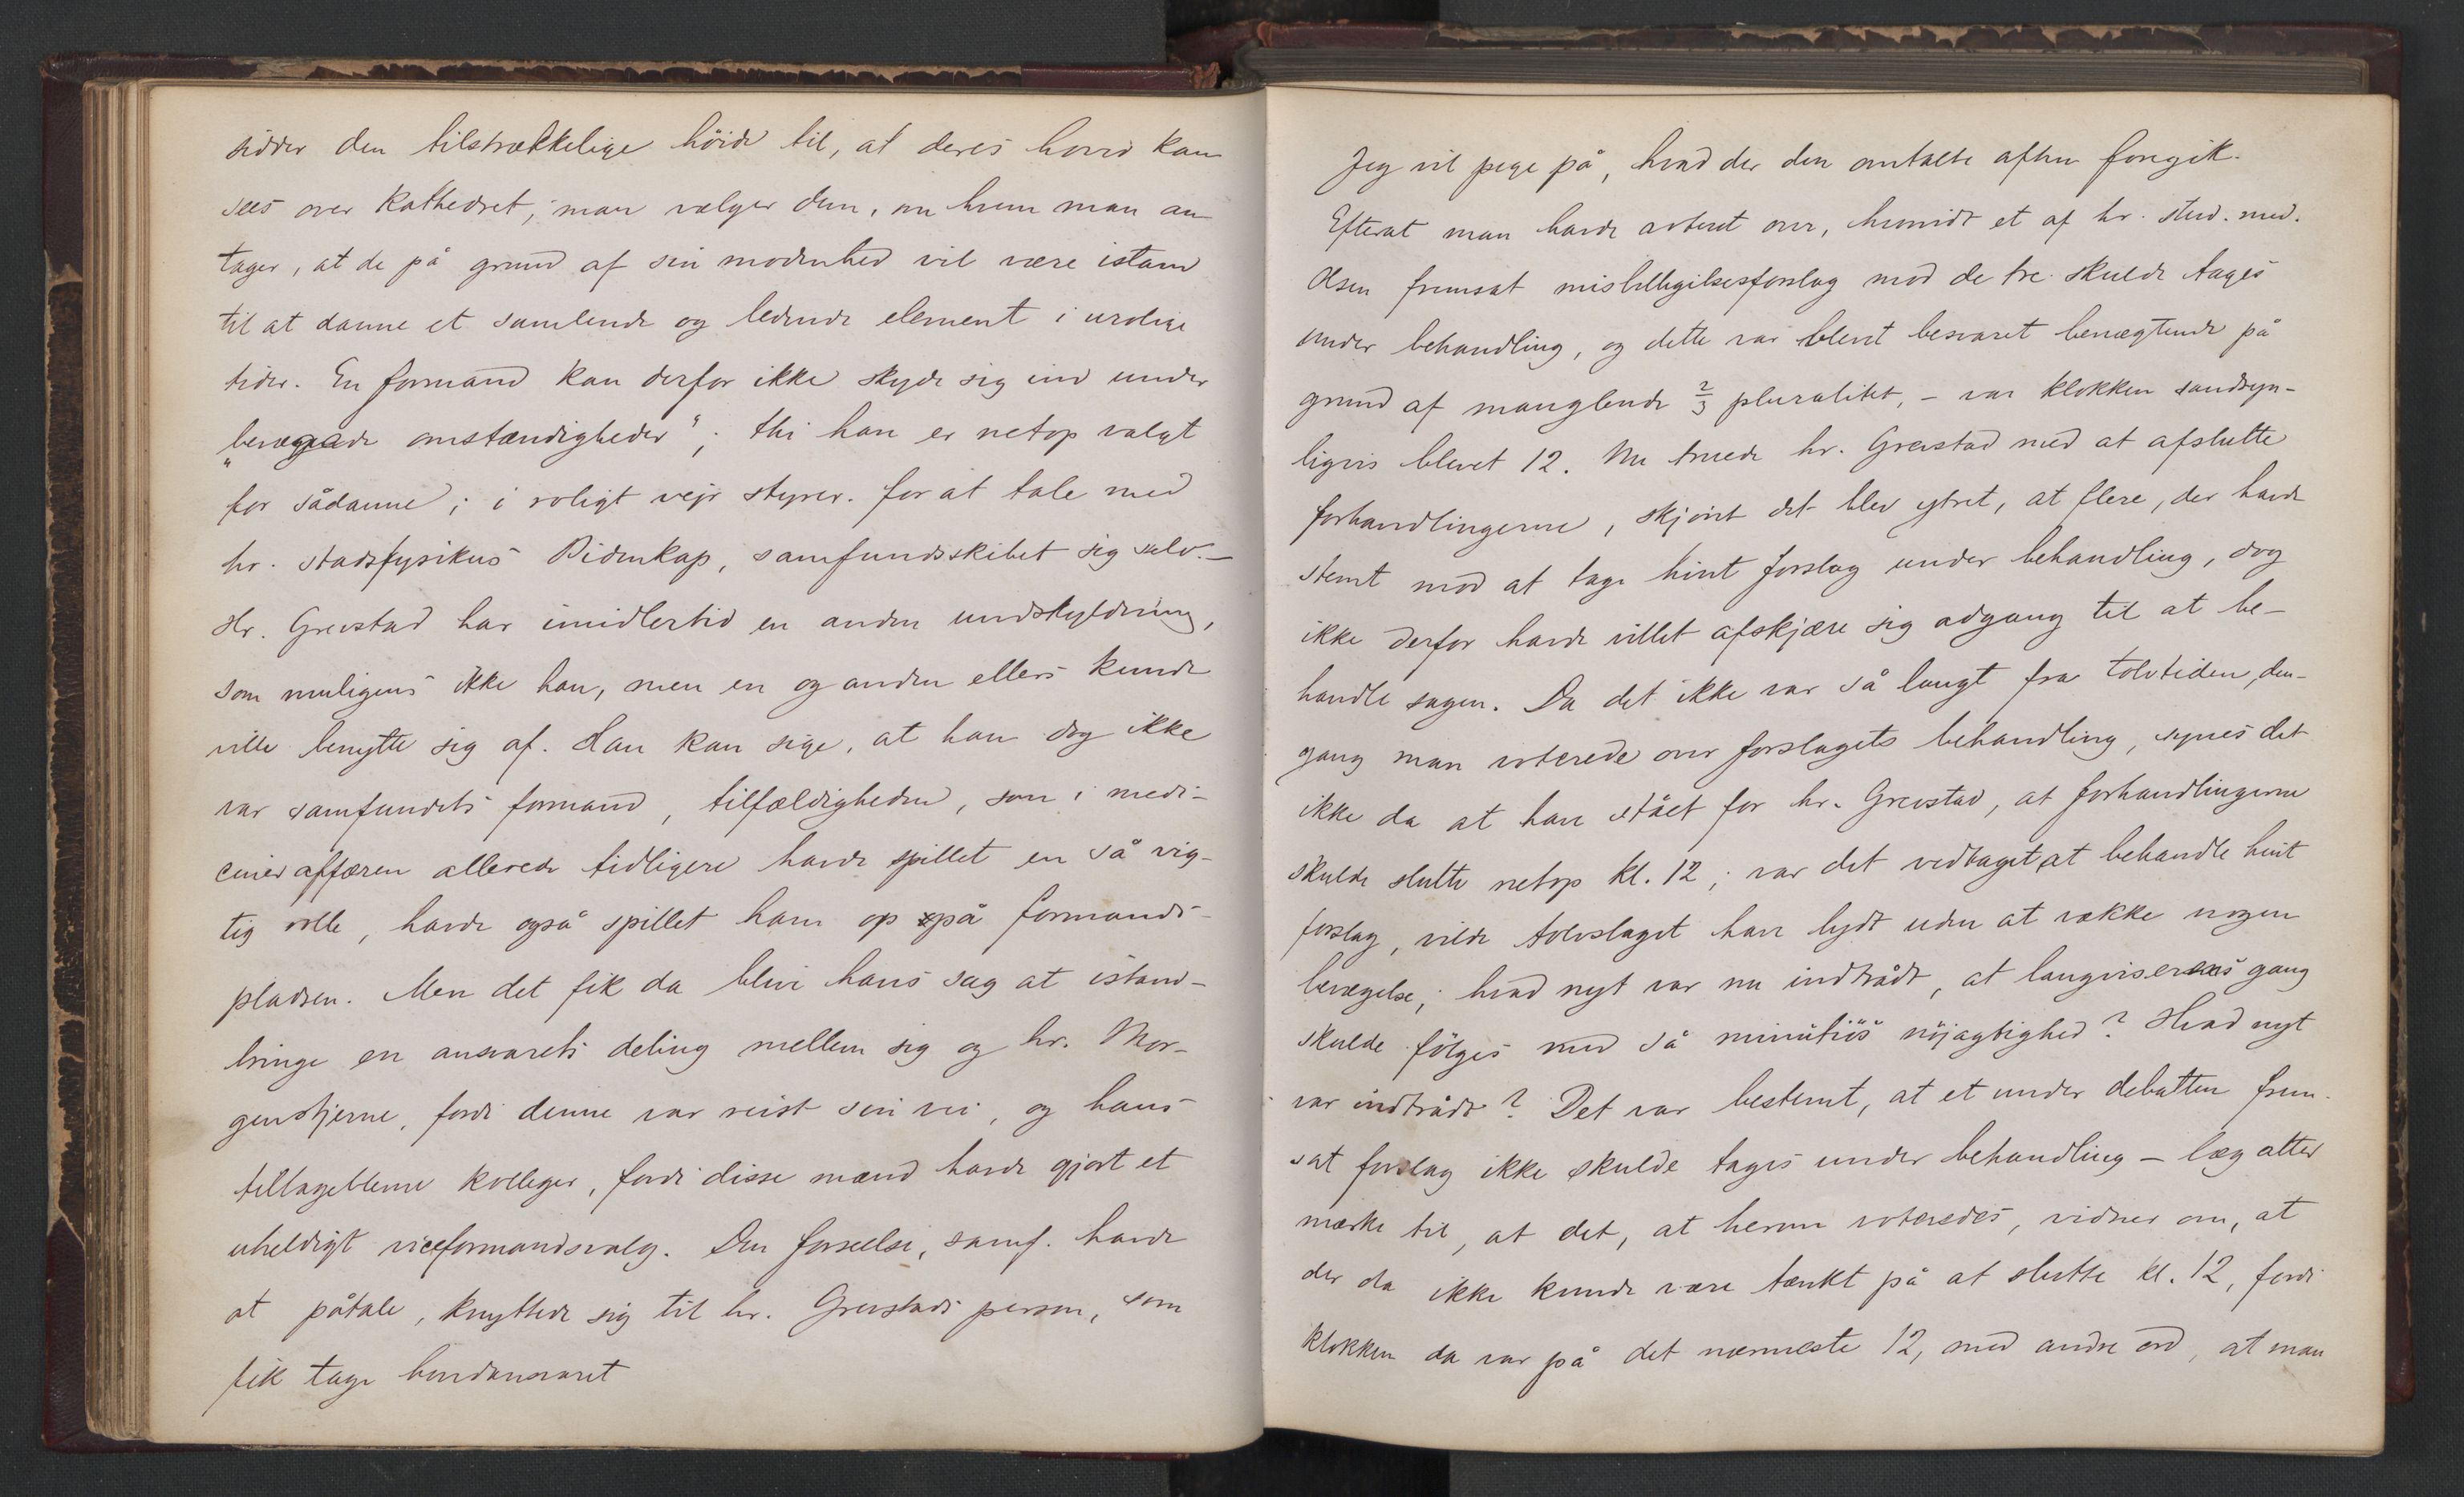 sidder den tilstrækkelige höide til, at deres hoved kan
sees over kathedret; man vælger dem, om hvem man an-
tager, at de på grund af sin modenhed vil være istand
til at danne et samlende og ledende element i urolige
tider. En formand kan derfor ikke skyde sig ind under
"bevægede omstændigheder"; thi han er netop valgt
for sådanne; i roligt vejr styrer. for at tale med
hr. stadsfysikus Bidenkap, samfundsskibet sig selv. –
Hr. Grevstad har imidlertid en anden undskyldning,
som muligens ikke han, men en og anden ellers kunde
ville benytte sig af. Han kan sige, at han dog ikke
var samfundets formand, tilfældigheden, som i medi-
cineraffæren allerede tidligere havde spillet en så vig-
tig rolle, havde også spillet ham op på formands-
pladsen. Men det fik da blive hans sag at istand-
bringe en ansvarets deling mellem sig og hr. Mor-
genstjerne, fordi denne var reist sin vei, og hans
tiltagelene kolleger, fordi disse mænd havde gjort et
uheldigt viceformandsvalg. Den forseelse, samf. havde
at påtale, knyttede sig til hr. Grevstads person, som
fik tage
Jeg vil pege på, hvad der den omtalte aften foregik.
Efterat man havde voteret over, hvorvidt et af hr. stud. med.
Olsen fremsat misbilligelsesforslag mod de tre skulde tages
under behandling, og dette var blevet besvaret benægtende på
grund af manglende 2/3 pluralitet, – var klokken sandsyn-
ligvis blevet 12. Nu truede hr. Grevstad med at afslutte
forhandlingerne, skjönt det blev ytret, at flere, der havde
stemt mod at tage hint forslag under behandling, dog
ikke derfor havde villet afskjære sig adgang til at be-
handle sagen. Da det ikke var så langt fra tolvtiden, den-
gang man voterede over forslagets behandling, synes det
ikke da at have stået for hr. Grevstad, at forhandlingerne
skulde slutte netop kl. 12; var det vedtaget at behandle hint
forslag, vilde tolvslaget have lydt uden at vække nogen
bevægelse; hvad nyt var nu indtrådt, at langviserens gang
skulde fölges med så minutiös nöjagtighed? Hvad nyt
var indtrådt? Det var bestemt, at et under debatten frem-
sat forslag ikke skulde tages under behandling – læg atter
mærke til, at det, at herom voteredes, vidner om, at
der da ikke kunde være tænkt på at slutte kl. 12, fordi
klokken da var på det nærmeste 12, med andre ord, at man